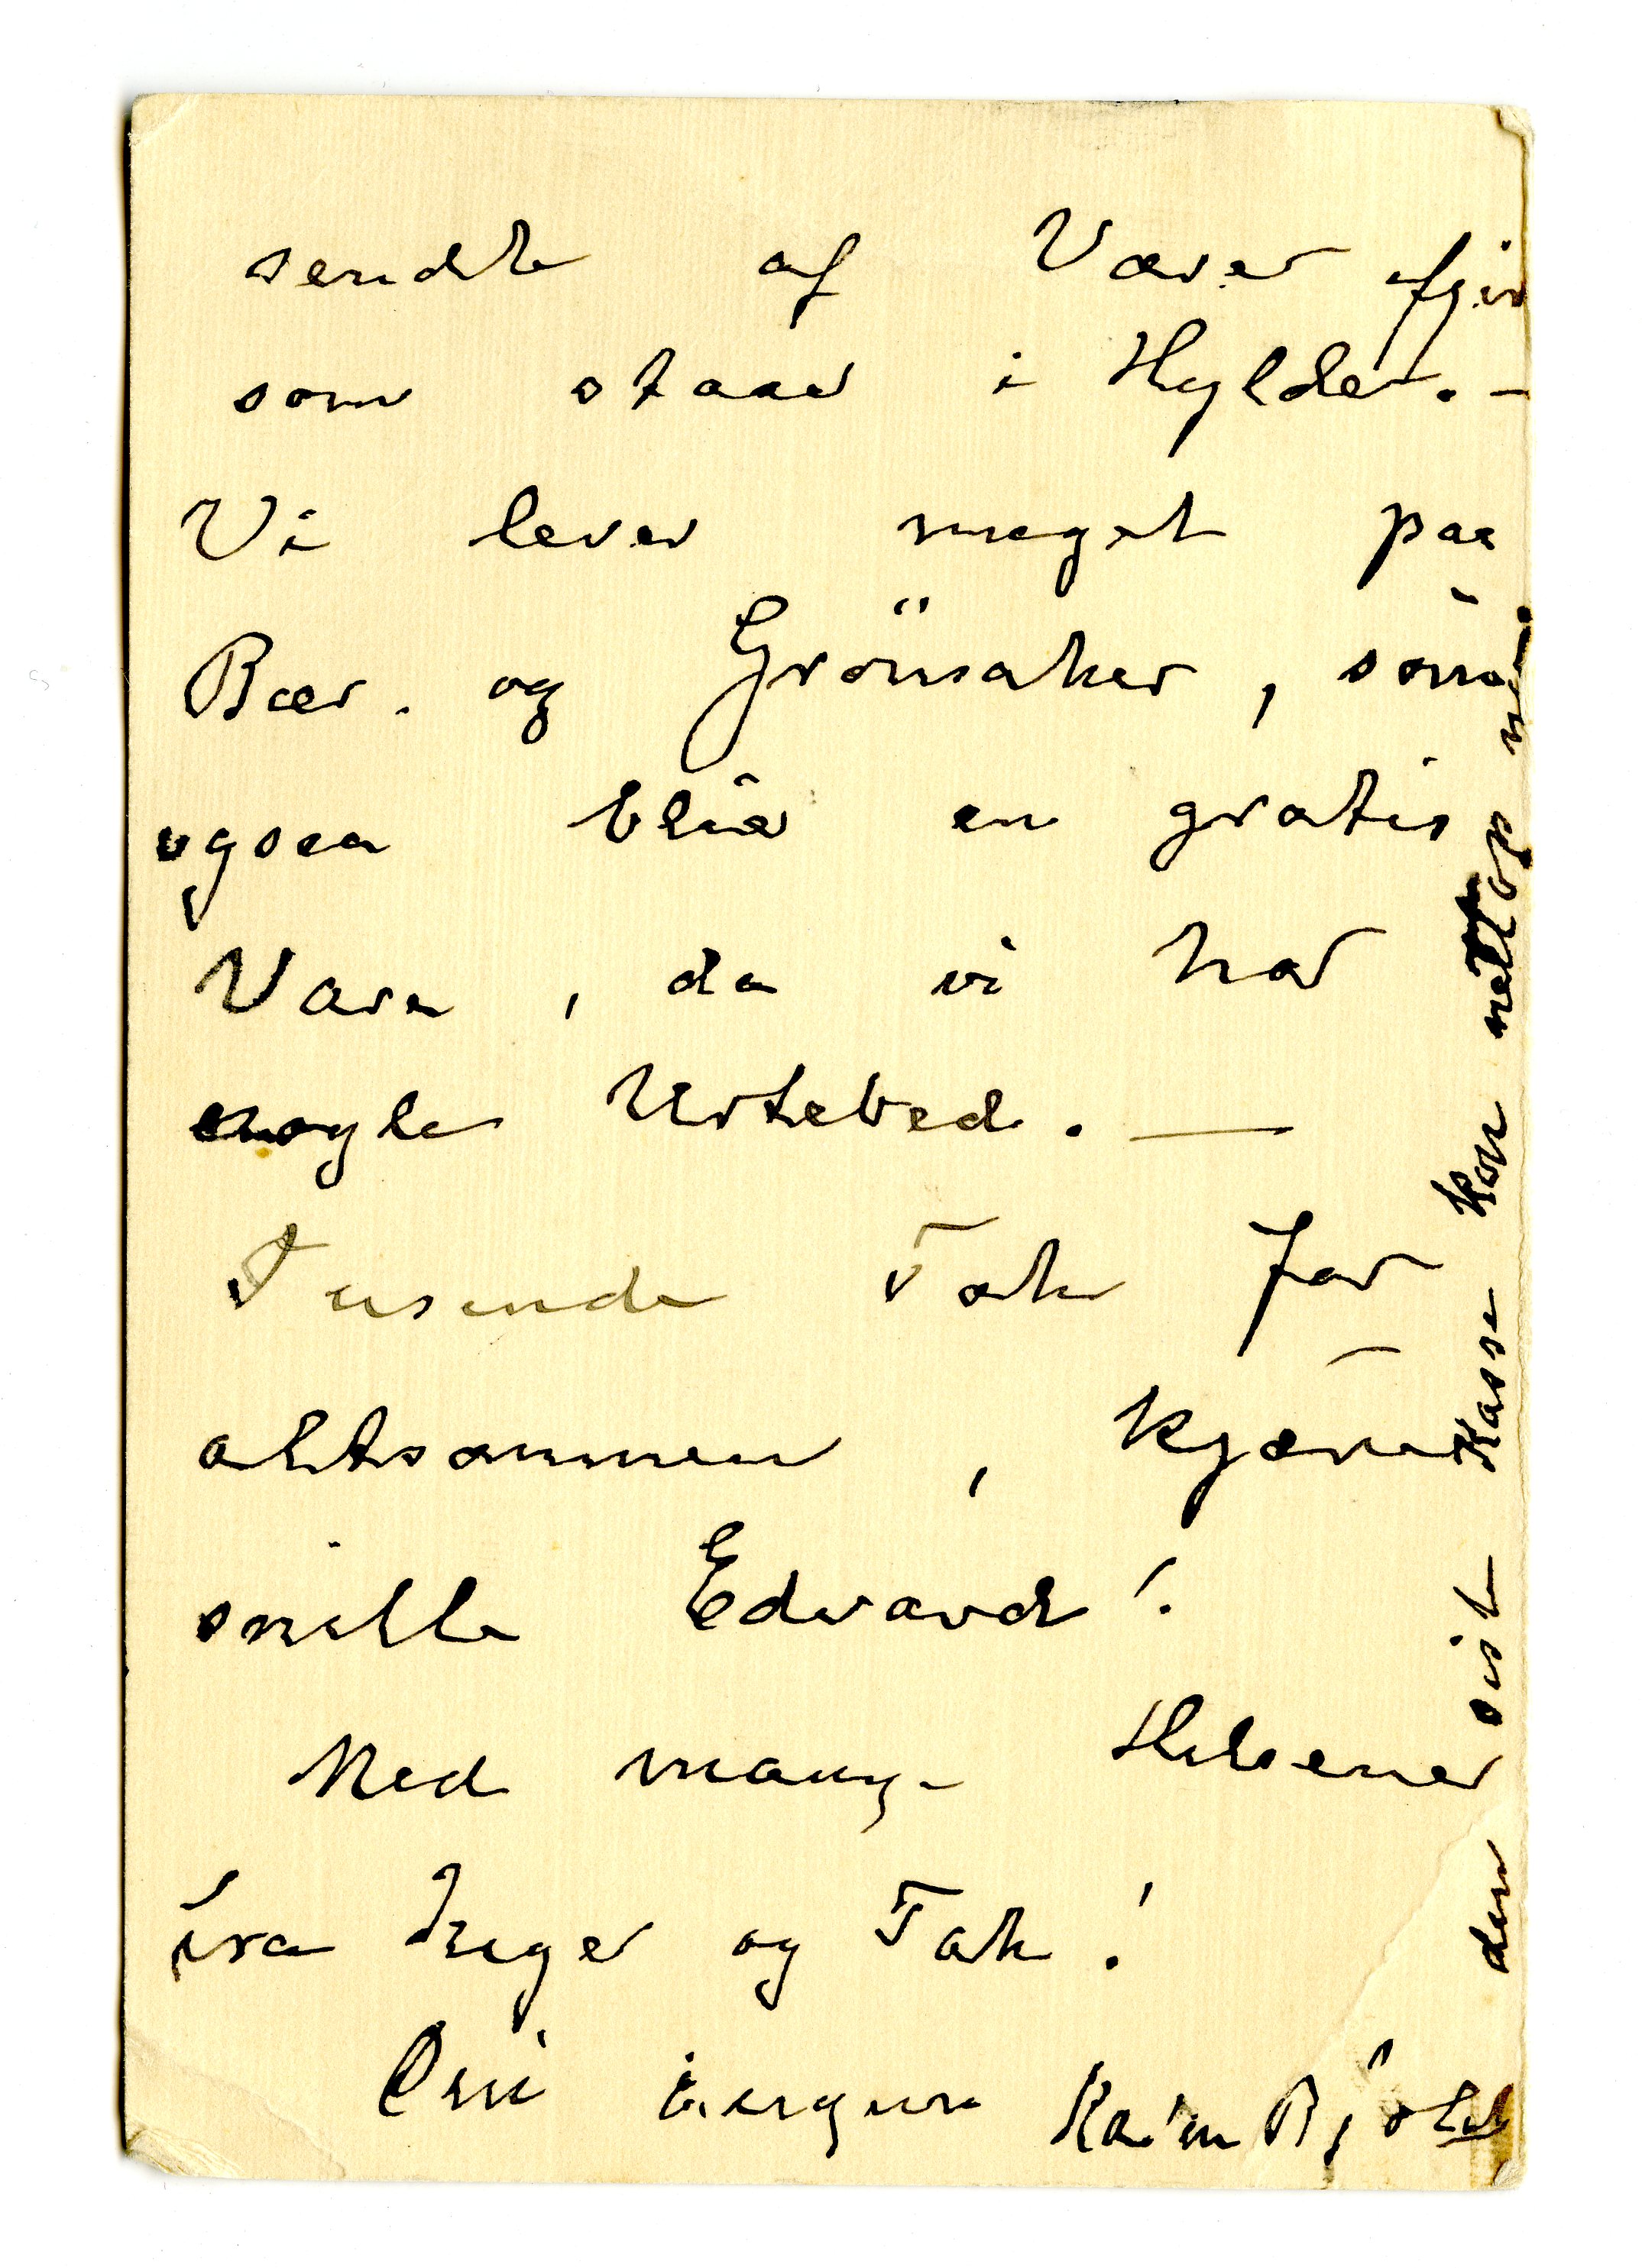 sendte af Varer
som staar i Hylder. —
Vi lever meget paa
Bær og Grönsaker, som
ogsaa blir en gratis
Vare, da vi har
nogle Urtebed. —
Tusende Tak for
altsammen, kjære
snille Edvard!
Med mange Hilsener
fra Inger og Tak!
Din hengivne Karen Bjöl
den siste Kasse kom netop nu.